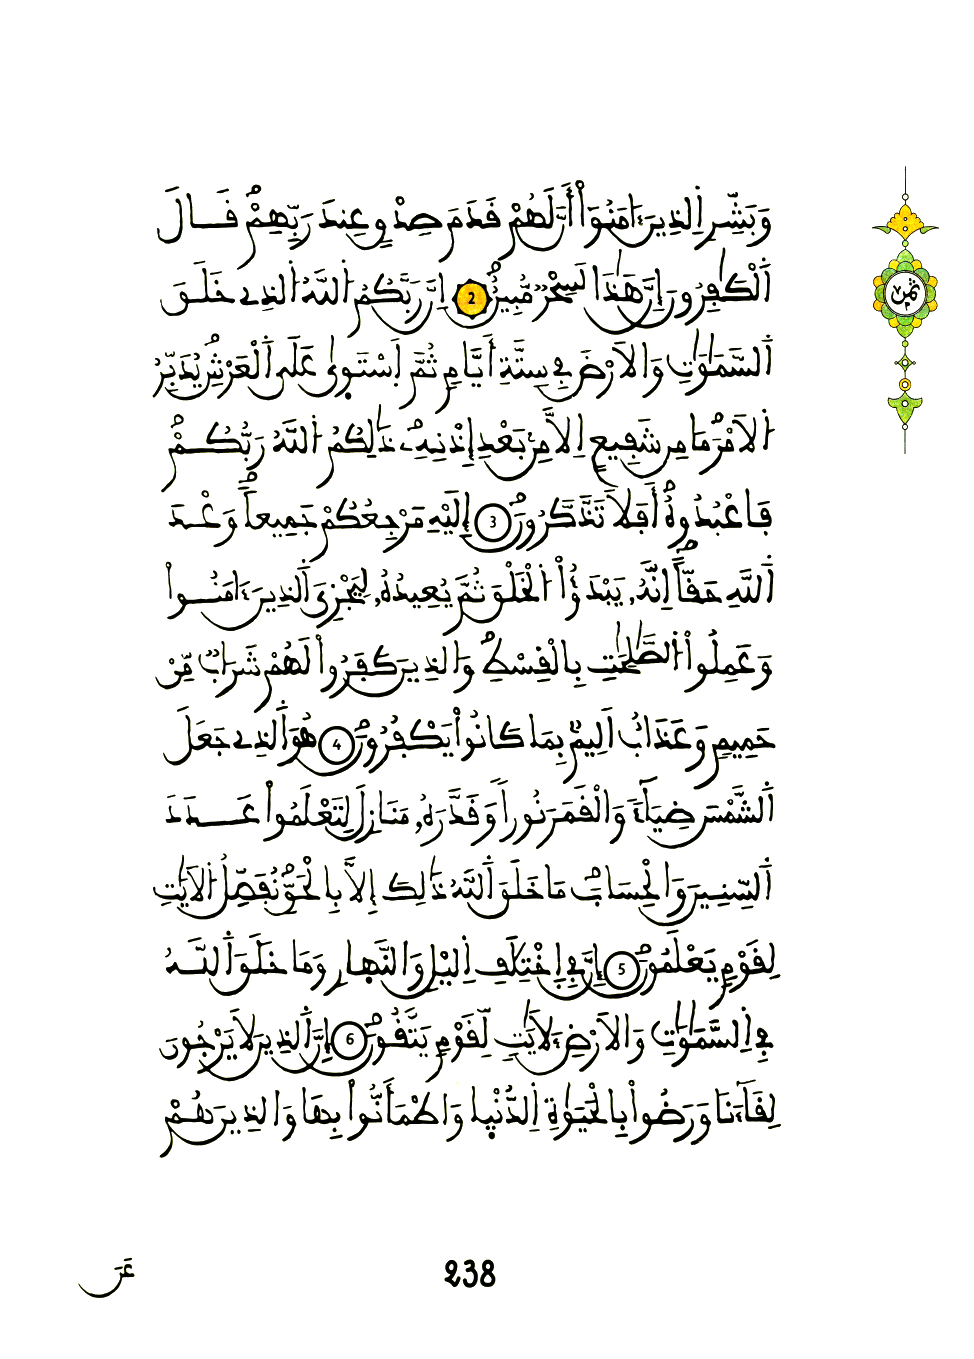 وَبَشِّرِ اِ۬لذِينَ ءَامَنُوٓاْ أَنَّ لَهُمْ قَدَمَ صِدْقٍ عِندَ رَبِّهِمْۖ قَــالَ
اَ۬لْكَٰفِرُونَ إِنَّ هَٰذَا لَسِحْرٞ مُّبِينٌۖ 2 اِنَّ رَبَّكُمُ اُ۬للَّهُ اُ۬لذِے خَلَــقَ
اَ۬لسَّمَٰوَٰتِ وَالَارْضَ فِے سِتَّةِ أَيَّامٖ ثُمَّ اَ۪سْتَو۪يٰ عَلَي اَ۬لْعَرْشِۖ يُدَبِّرُ
اُ۬لَامْرَۖ مَا مِن شَفِيعٍ اِلَّا مِنۢ بَعْدِ إِذْنِهِۦۖ ذَٰلِكُمُ اُ۬للَّهُ رَبُّكُــمْۖ
فَاعْبُدُوهُۖ أَفَلَا تَذَّكَّرُونَۖ 3 إِلَيْهِ مَرْجِعُكُمْ جَمِيعاٗۖ وَعْــدَ
اَ۬للَّهِ حَقّاًۖ اِنَّهُۥ يَبْدَؤُاْ اُ۬لْخَلْقَ ثُمَّ يُعِيدُهُۥ لِيَجْزِيَ اَ۬لذِينَ ءَامَنُــواْ
وَعَمِلُواْ اُ۬لصَّٰلِحَٰتِ بِالْقِسْطِۖ وَالذِينَ كَفَرُواْ لَهُمْ شَرَابٞ مِّنْ
حَمِيمٖ وَعَذَابٌ اَلِيمٌۢ بِمَا كَانُواْ يَكْفُرُونَۖ 4 هُوَ اَ۬لذِے جَعَلَ
اَ۬لشَّمْسَ ضِيَآءٗ وَالْقَمَرَ نُوراٗ وَقَدَّرَهُۥ مَنَازِلَ لِتَعْلَمُواْ عَــدَدَ
اَ۬لسِّنِيــنَ وَالْحِسَابَۖ مَا خَلَقَ اَ۬للَّهُ ذَٰلِكَ إِلَّا بِالْحَقِّۖ نُفَصِّلُ اُ۬لَايَٰتِ
لِقَوْمٖ يَعْلَمُونَۖ 5 إِنَّ فِے اِ۪خْتِلَٰفِ اِ۬ليْلِ وَالنَّه۪ارِ وَمَا خَلَقَ اَ۬للَّــهُ
فِے اِ۬لسَّمَٰوَٰتِ وَالَارْضِ ءَلَايَٰتٖ لِّقَوْمٖ يَتَّقُونَۖ 6 إِنَّ اَ۬لذِينَ لَا يَرْجُونَ
لِقَآءَنَا وَرَضُواْ بِالْحَيَوٰةِ اِ۬لدُّنْي۪ا وَاطْمَأَنُّواْ بِهَا وَالذِينَ هُمْ
ثمن
238
عَنَ